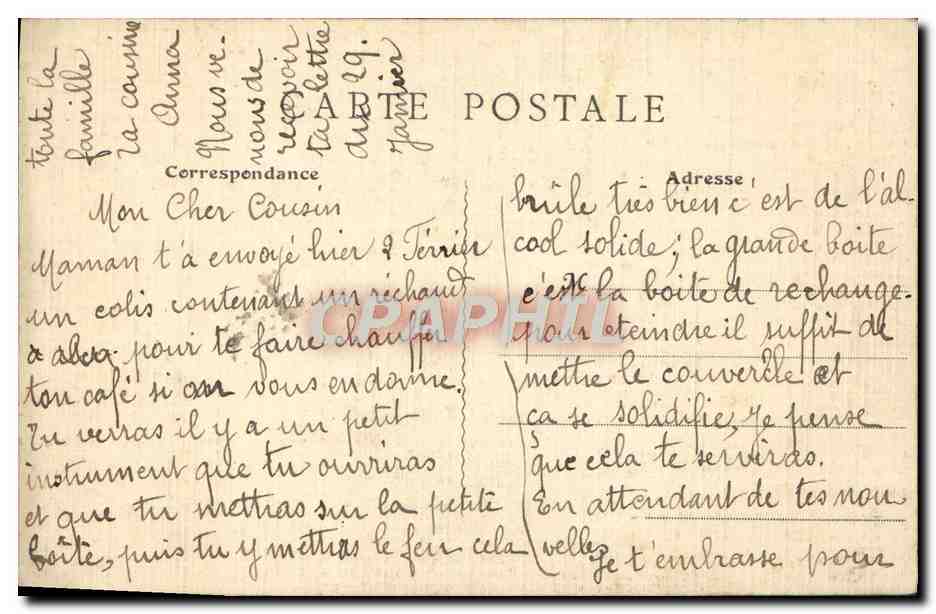 CARTE POSTALE
Correspondance
Mon Cher Cousin
Maman t'à envoyé hier 2 Férrier
un colis contenant un réchaud
à pour te faire chauffer
ton café si on vous en donne.
Tu verras il y a un petit
instrument que tu ouvriras
et que tu mettras sur la petite
boîte, puis tu y mettras le feu cela
Adresse
brûle très bien c'est de l'ál-
cool solide; la grande boite
c'est la boite de rechange.
pour eteindre il suffit de
mettre le couvercle et
ça se solidifie, Je pense
que cela te serviras.
En attendant de tes nou
velles
Je t'embrasse pour
toute la
famille
ta cousine
Anna
Nous ve-
nous de
recevoir
ta lettre
du 29.
Janvier
CPAPHIL